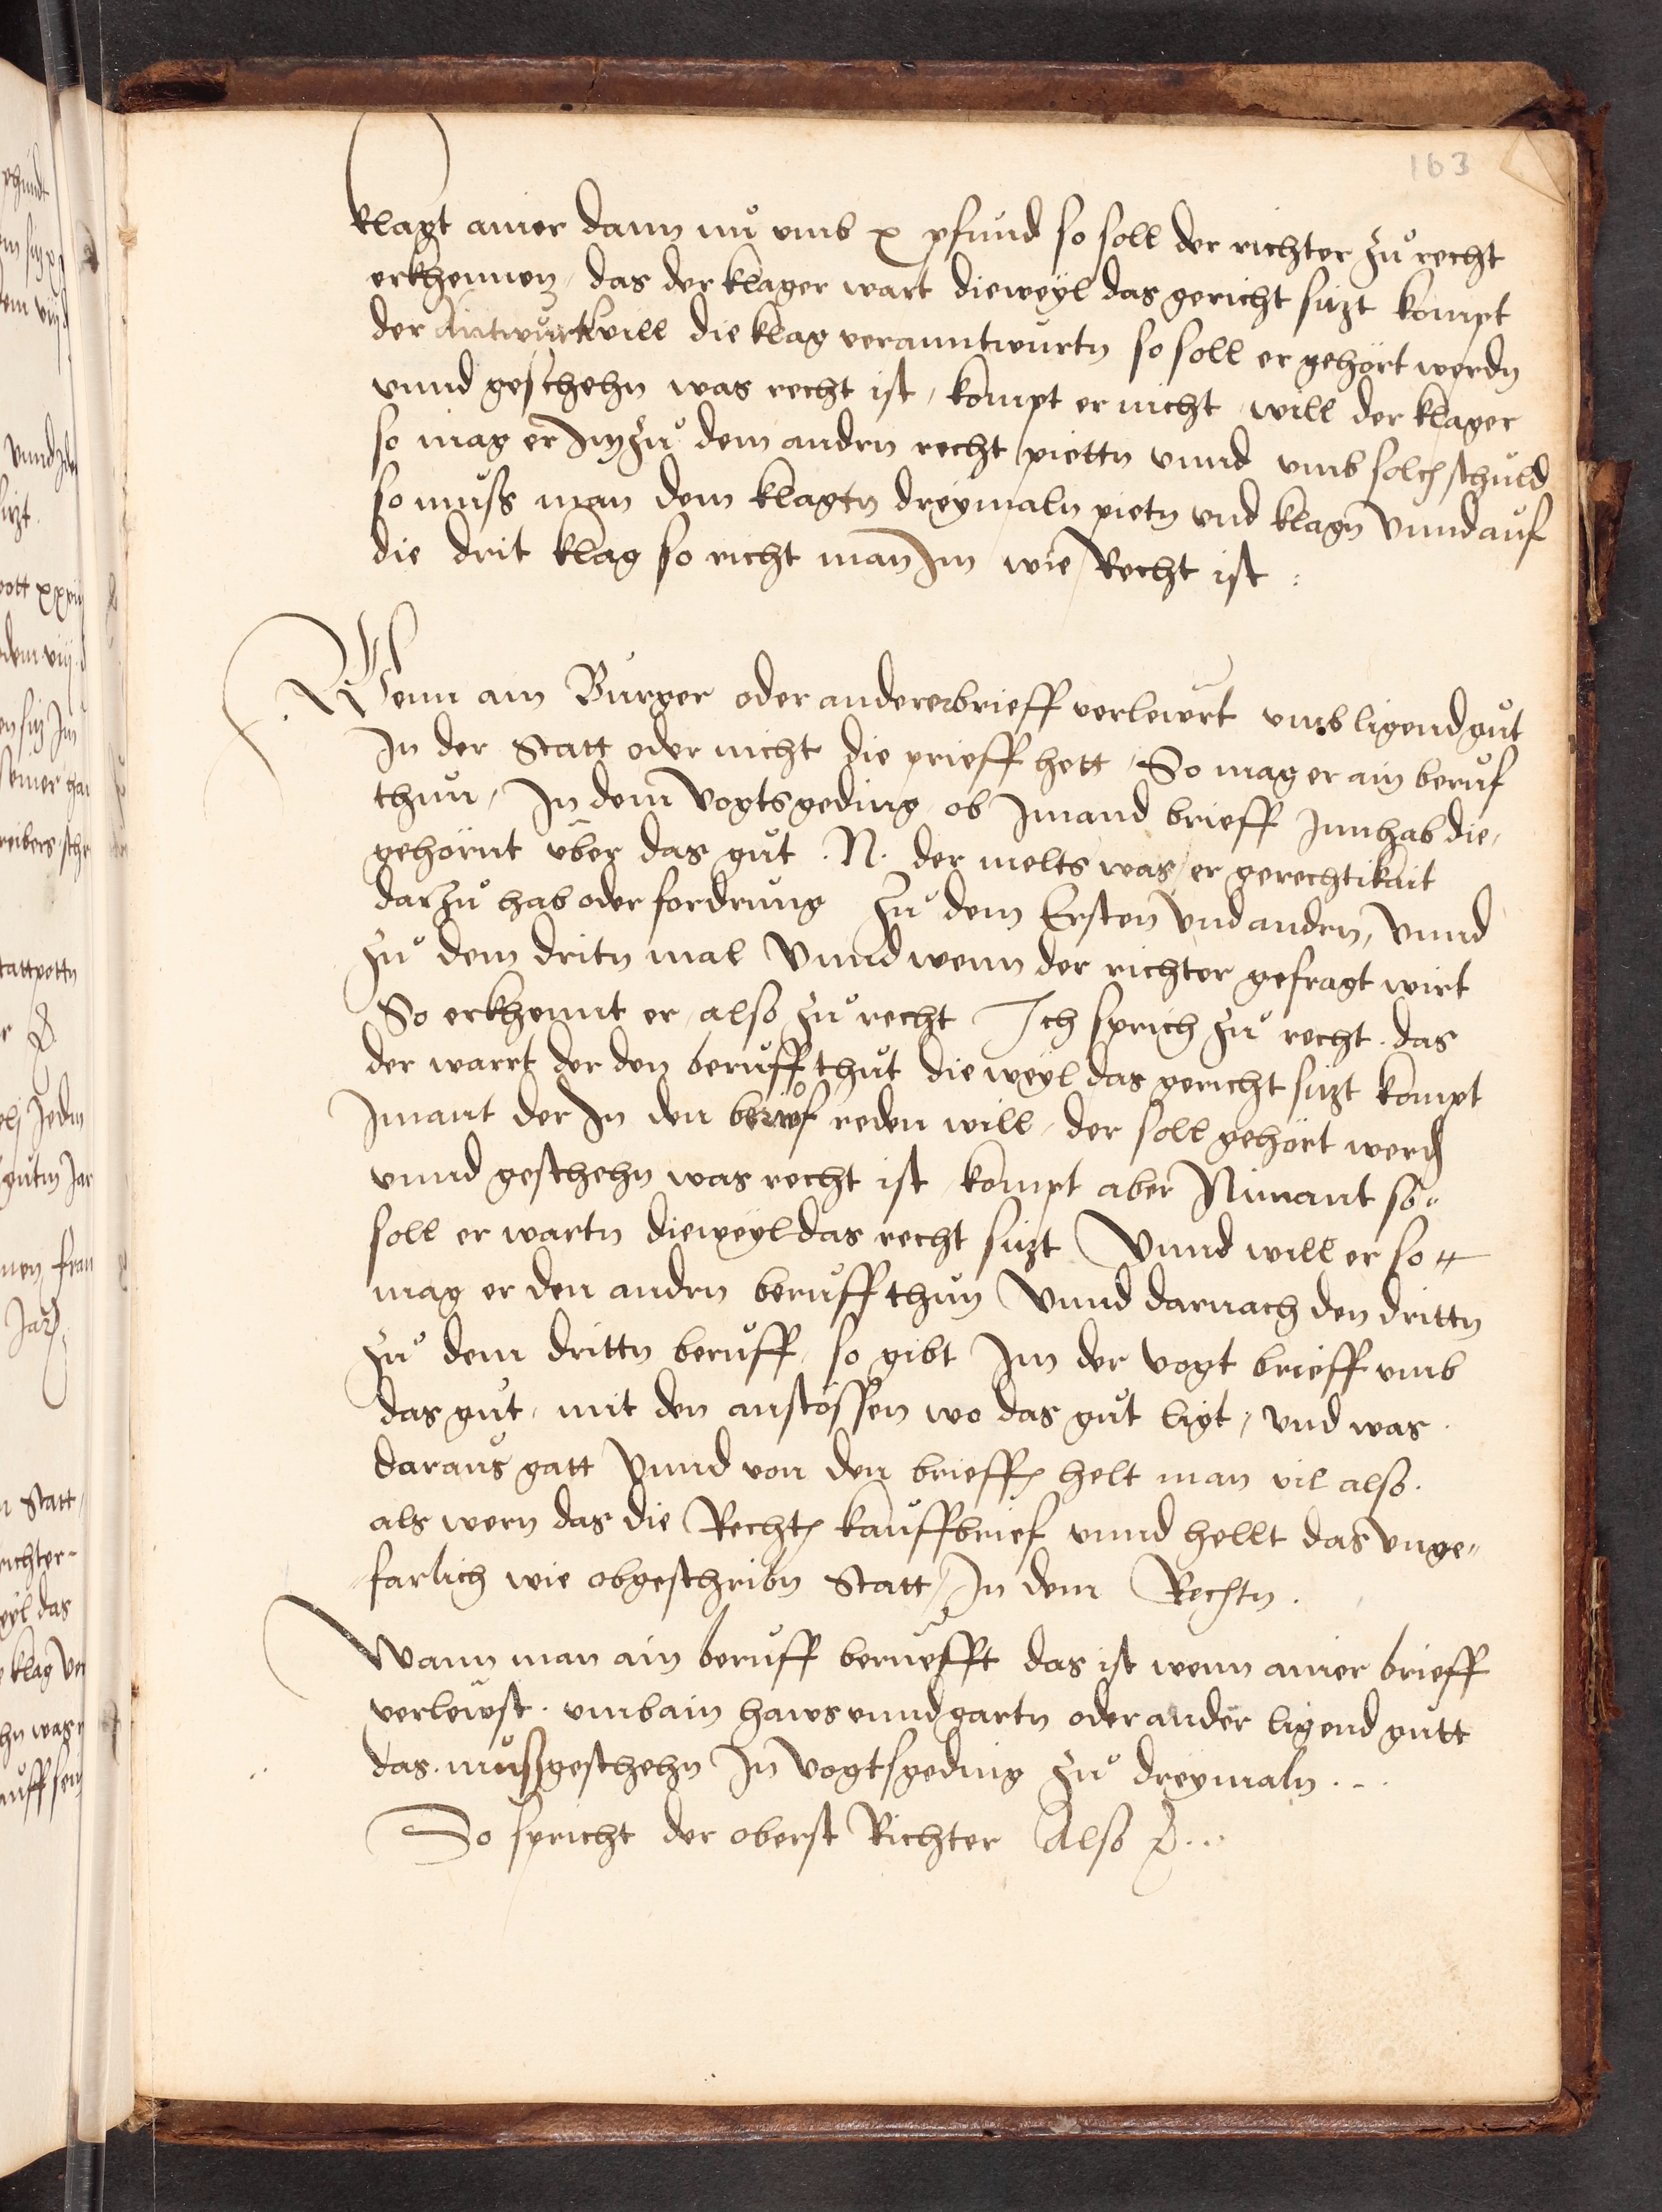 163
klagt ainer dann nu vmb x pfund so soll der richter zů recht
erkhennen, das der klager wart dieweyl das gericht sitzt kompt
der Antwurt will die klag veranntwurtn so soll er gehört werdn
vnnd geschehn was recht ist, kompt er nicht will der klager
so mag er Im zů dem andrn recht piettn vnnd vmb solch schuld
so muss man dem klagtn dreymaln pietn vnd klagn vnnd auf
die drit klag so richt man Im wie Recht ist :
Wenn ain Burger oder anderer brieff verlewrt vmb ligend gůt
In der Statt oder nicht die prieff hett, So mag er ain beruf
thun, In dem vogtsgeding ob Imand brieff Innhab die,
gehörnt über das gůt . N. der melts was er gerechtikait
darzů hab oder fordrung zů dem Ersten vnd andrn, vnnd
zů dem dritn mal vnnd wenn der richter gefragt wirt
So erkhennt er also zů recht Ich sprich zů recht . das
der warrt der den berůff thůt die weyl das gericht sitzt kompt
Imant der In den berůf reden will, der soll gehört werdn
vnnd geschehn was recht ist kompt aber Nimant so„
soll er wartn dieweyl das recht sitzt Vnnd will er so„
mag er den andrn berůff thun Vnnd darnach den drittn
zů dem drittn berůff so gibt Im der vogt brieff vmb
das gůt, mit den anstössen wo das gůt ligt, vnd was .
daraus gatt Vnnd von den brieffn helt man vil also .
als wern das die Rechtn kauffbrief vnnd hellt das vnge„
farlich wie obgeschribn Statt, In dem Rechtn .
Wann man ain berůff berüefft das ist wenn ainer brieff
verlewst . vmb ain haws vnnd gartn oder ander ligend gutt
das . můss geschehn In vogtsgeding zů dreymaln . - .
So spricht der oberst Richter Also &c...